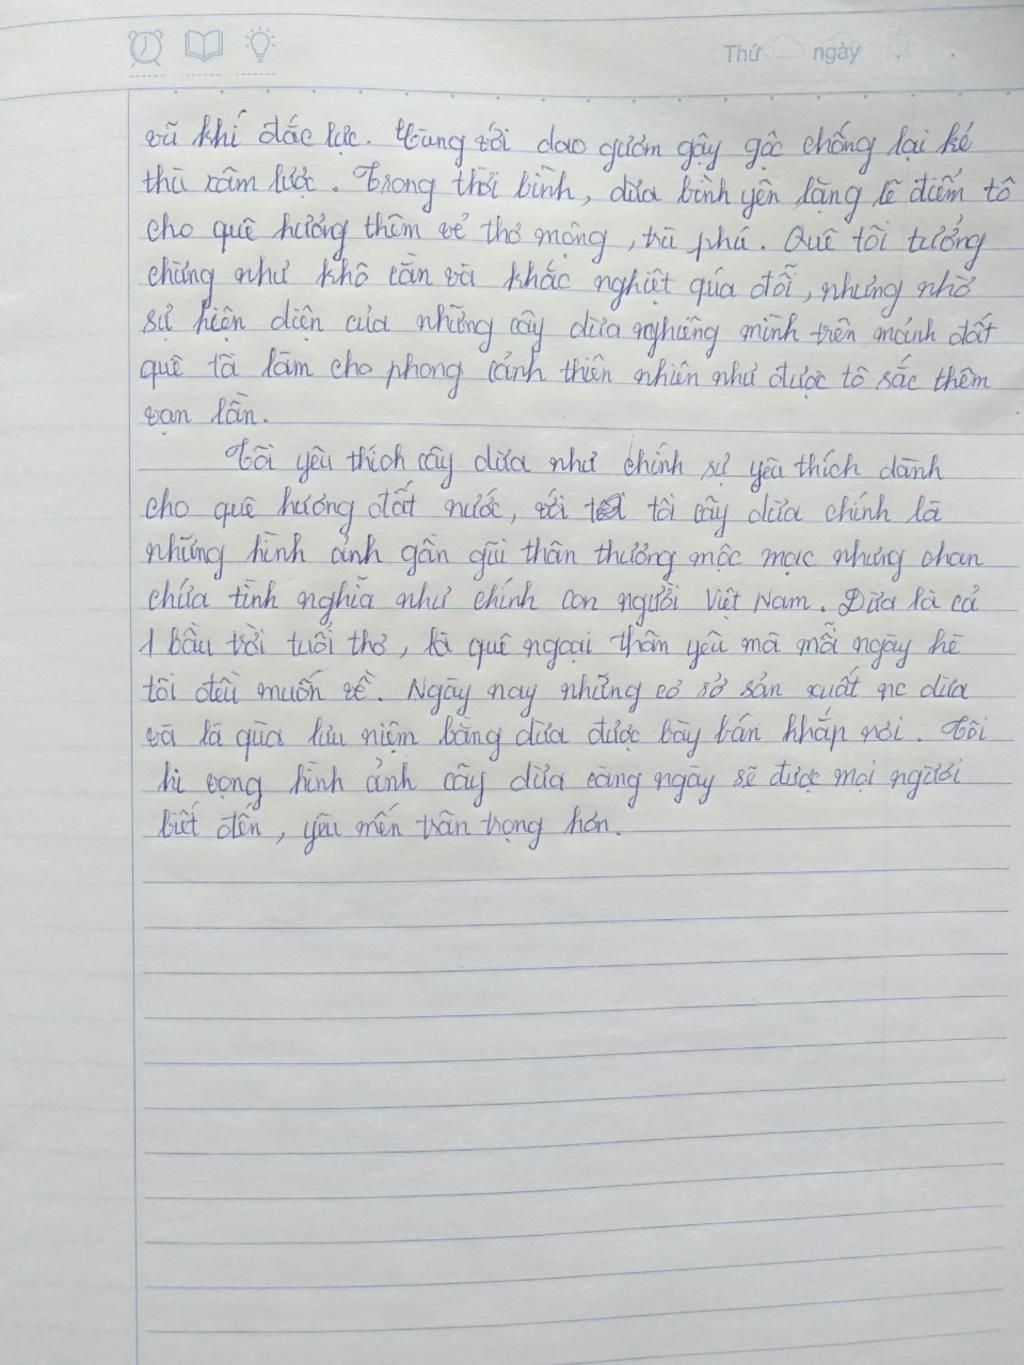 Thứ ngày
vũ khí đắc lực. Cùng với dao gươm gậy gộc chống lại kẻ
thù xâm lược. Trong thời bình, dừa bình yên lặng lẽ điểm tô
cho quê hương thêm vẻ thơ mộng, trù phú. Quê tôi tưởng
chừng như khô cằn và khắc nghiệt qúa đỗi, nhưng nhờ
sự hiện diện của những cây dừa nghiêng mình trên mảnh đất
quê tà làm cho phong cảnh thiên nhiên như được tô sắc thêm
vạn lần.
Tôi yêu thích cây dừa như chính sự yêu thích dành
cho quê hương đất nước, với tôi cây dừa chính là
những hình ảnh gần gũi thân thương mộc mạc nhưng chan
chứa tình nghĩa như chính con người Việt Nam. Dừa là cả
1 bầu trời tuổi thơ, là quê ngoại thân yêu mà mỗi ngày hè
tôi đều muốn về. Ngày nay những cơ sở sản xuất nc dừa
và là qùa lưu niệm bằng dừa được bày bán khắp nơi. Tôi
hi vọng hình ảnh cây dừa càng ngày sẽ được mọi người
biết đến, yêu mến trân trọng hơn.